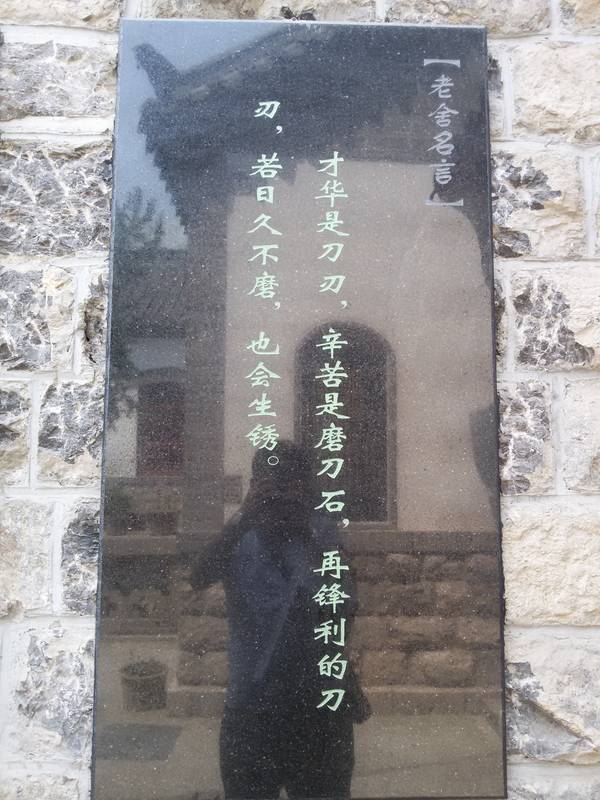 【老舍名言】
才华是刀刃，辛苦是磨刀石，再锋利的刀
刃，若日久不磨，也会生锈。